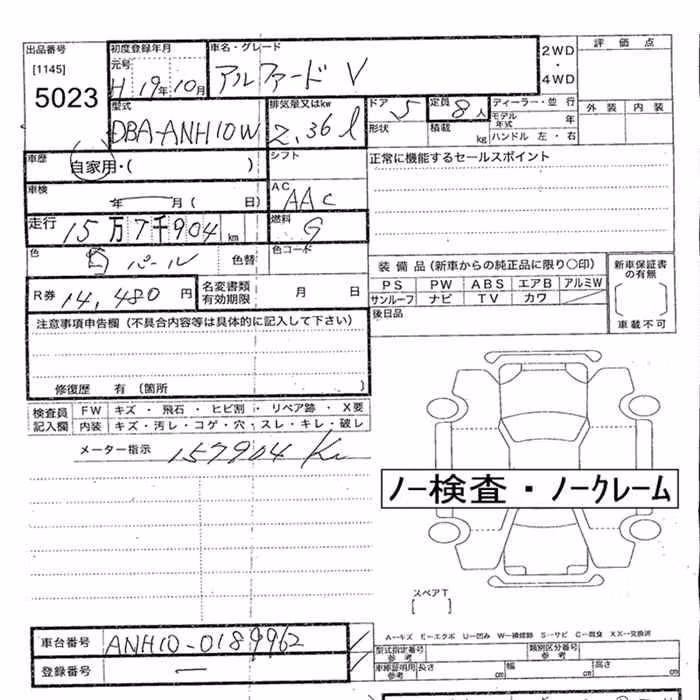 出品番号
[1145]
5023
初度登録年月
元号
H 19年10月
車名・グレード
アルファード V
2WD
・
4WD
評価点
外装 内装
型式
DBA-ANH10W
排気量又はkw
2.36 l
ドア 5
形状
定員 8人
積載 kg
ディーラー・並行
モデル年式 年
ハンドル 左・右
車歴
自家用・( )
シフト
正常に機能するセールスポイント
車検
年 月( 日)
AC
AAC
走行
15万7千904 km
燃料
G
色
白 パール
色替
色コード
R券 14,480円
名変書類有効期限 月 日
装備品(新車からの純正品に限り〇印)
PS PW ABS エアB アルミW
サンルーフ ナビ TV カワ
後日品
新車保証書の有無
( )
車載不可
注意事項申告欄(不具合内容等は具体的に記入して下さい)
修復歴 有(箇所 )
検査員記入欄
FW キズ・飛石・ヒビ割・リペア跡・X要
内装 キズ・汚レ・コゲ・穴・スレ・キレ・破レ
メーター指示 157904 Km
ノー検査・ノークレーム
スペアT
[ ]
車台番号 ANH10-0189962
登録番号 ー
A—キズ E—エクボ U—凹み W—補修跡 S—サビ C—腐食 XX—交換済
型式指定番号 参考
類別区分番号 参考
車庫証明用参考 長さ cm 幅 cm 高さ cm